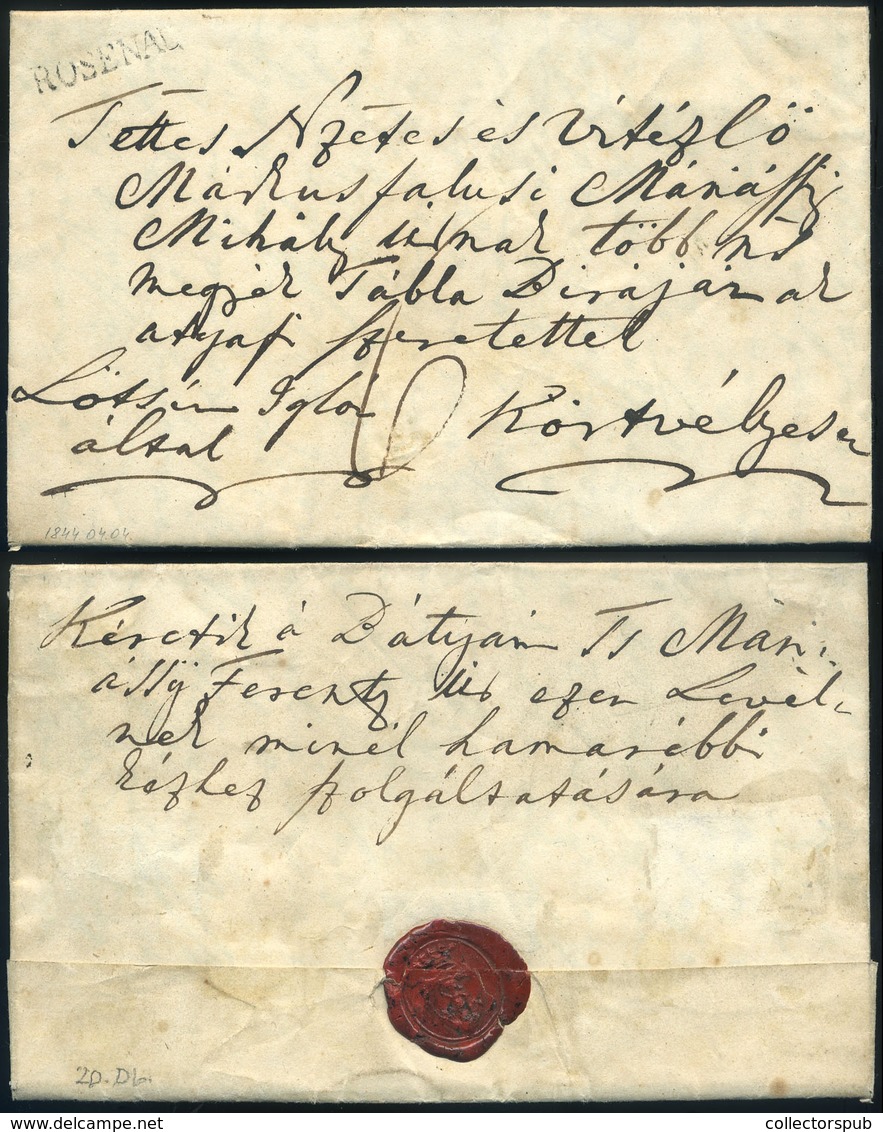 ROSENAU
Tettes Nzetes és Vitézlő
Márkusfalusi Máriássy
Mihály úrnak több ns
megyék Tábla Birájának
atyafi szeretettel
Lőtsén Iglón
által
Körtvélyesen
6
1844.04.04.
Kéretik á Bátyám Ts Mári-
ássÿ Ferentz Úr ezen Levél-
nek minél hamarébbi
kézhez szolgáltatására
20. Db.
delcampe.net
collectorspub